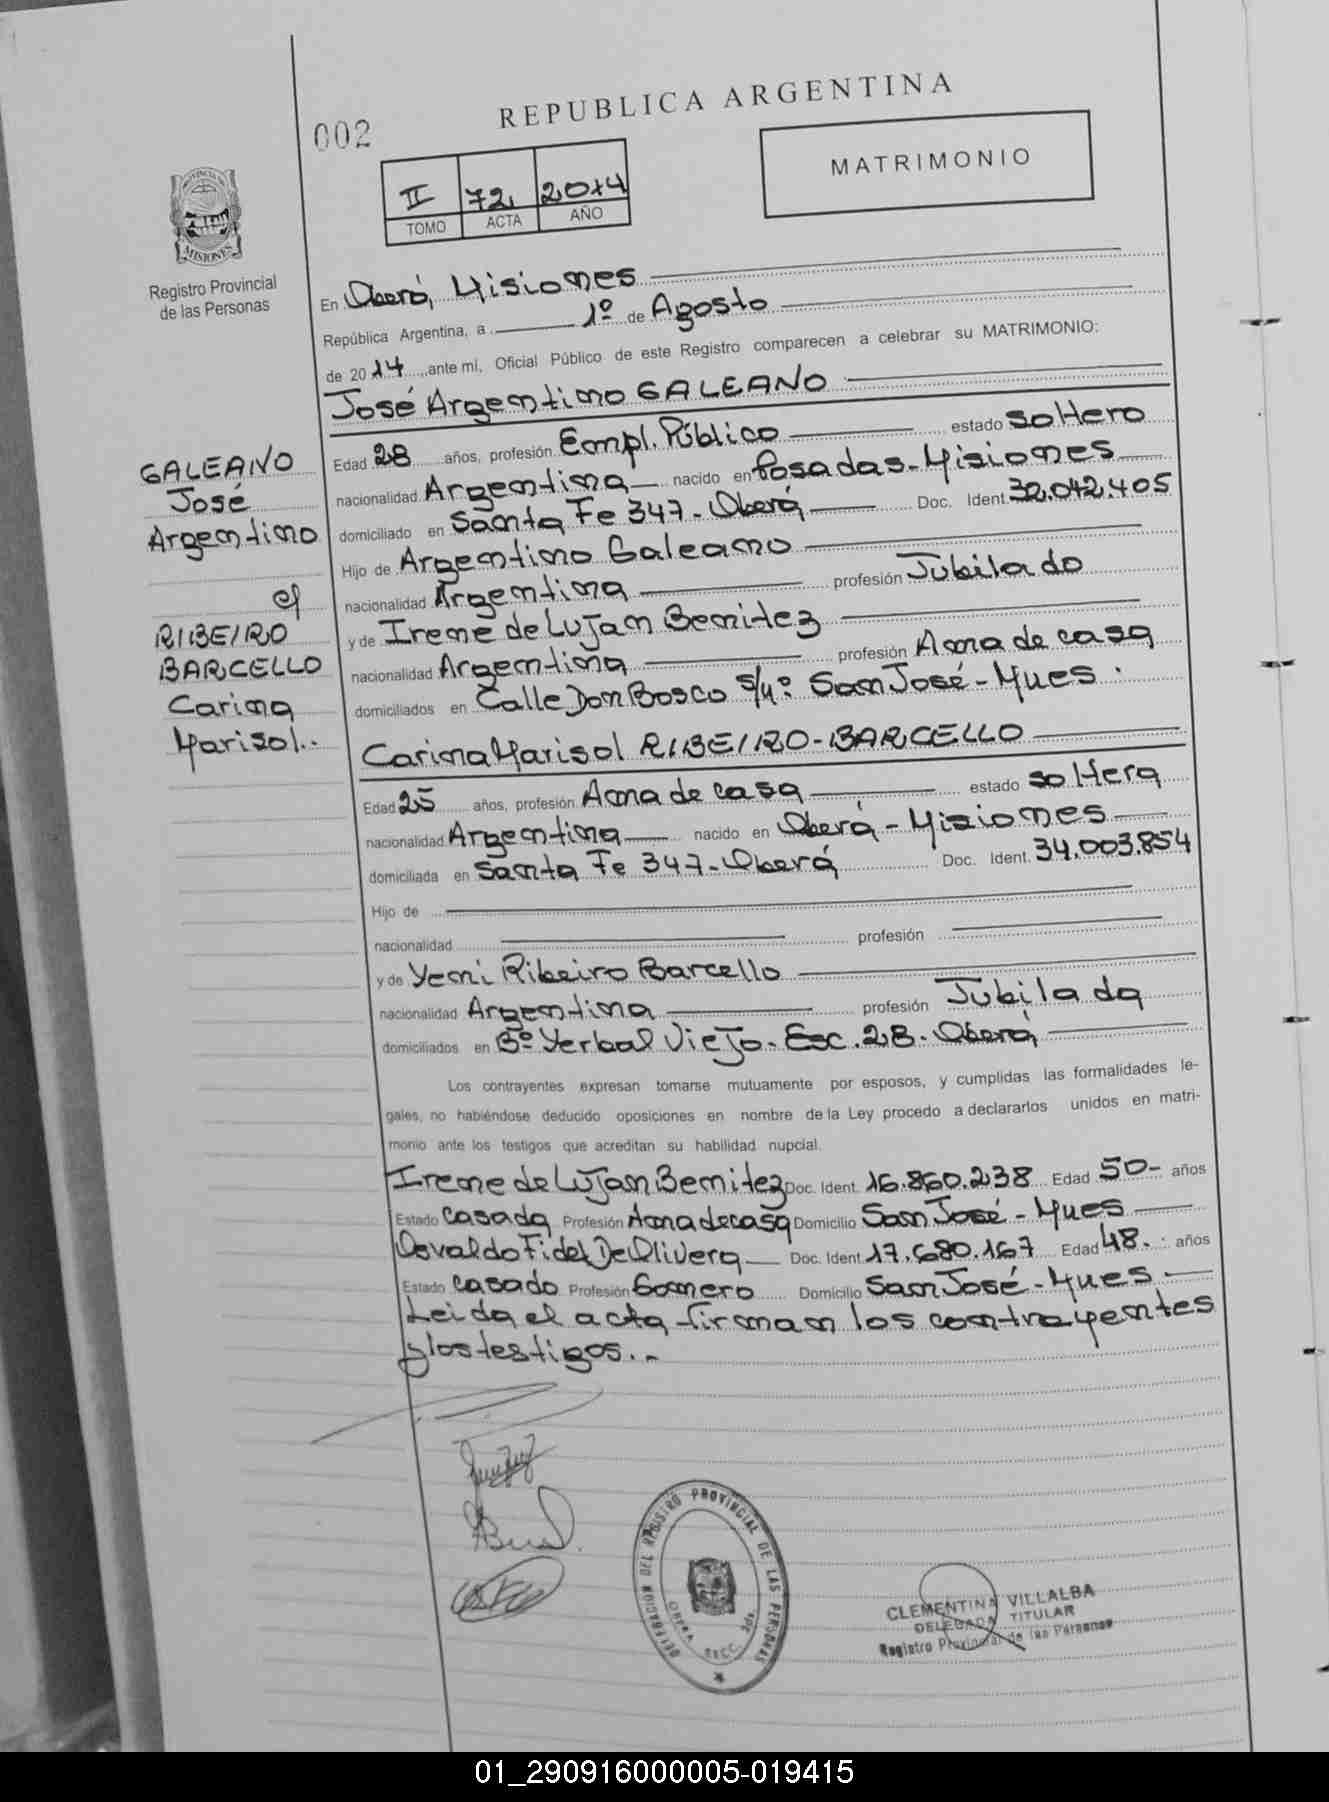 REPUBLICA ARGENTINA
002
MATRIMONIO
II 72 2014
TOMO ACTA AÑO
PROVINCIA DE
MISIONES
Registro Provincial
de las Personas
En Oberá, Misiones
República Argentina, a 1º de Agosto
de 2014 ante mí, Oficial Público de este Registro comparecen a celebrar su MATRIMONIO:
José Argentino GALEANO
Edad 28 años, profesión Empl. Público estado soltero
nacionalidad Argentina nacido en Posadas-Misiones
domiciliado en Santa Fe 347-Oberá Doc. Ident. 32.042.405
Hijo de Argentino Galeano
nacionalidad Argentina profesión Jubilado
y de Irene de Lujan Benitez
nacionalidad Argentina profesión Ama de casa
domiciliados en Calle Don Bosco S/Nº San José-Mnes.
GALEANO
José
Argentino
c/
RIBEIRO
BARCELLO
Carina
Marisol..
Carina Marisol RIBEIRO-BARCELLO
Edad 25 años, profesión Ama de casa estado soltera
nacionalidad Argentina nacido en Oberá-Misiones
domiciliada en Santa Fe 347-Oberá Doc. Ident. 34.003.854
Hijo de
nacionalidad profesión
y de Yeni Ribeiro Barcello
nacionalidad Argentina profesión Jubilada
domiciliados en Bº Yerbal Viejo-Esc. 28-Oberá
Los contrayentes expresan tomarse mutuamente por esposos, y cumplidas las formalidades le-
gales, no habiéndose deducido oposiciones en nombre de la Ley procedo a declararlos unidos en matri-
monio ante los testigos que acreditan su habilidad nupcial.
Irene de Lujan Benitez Doc. Ident. 16.860.238 Edad 50- años
Estado casada Profesión Ama de casa Domicilio San José-Mnes
Osvaldo Fidel De Olivera Doc. Ident. 17.680.167 Edad 48. años
Estado casado Profesión Gomero Domicilio San José-Mnes
Leida el acta firman los contrayentes
y los testigos.-
DELEGACION DEL REGISTRO PROVINCIAL DE LAS PERSONAS
OBERA SECC. 2da.
CLEMENTINA VILLALBA
DELEGADA TITULAR
Registro Provincial de las Personas
01_290916000005-019415